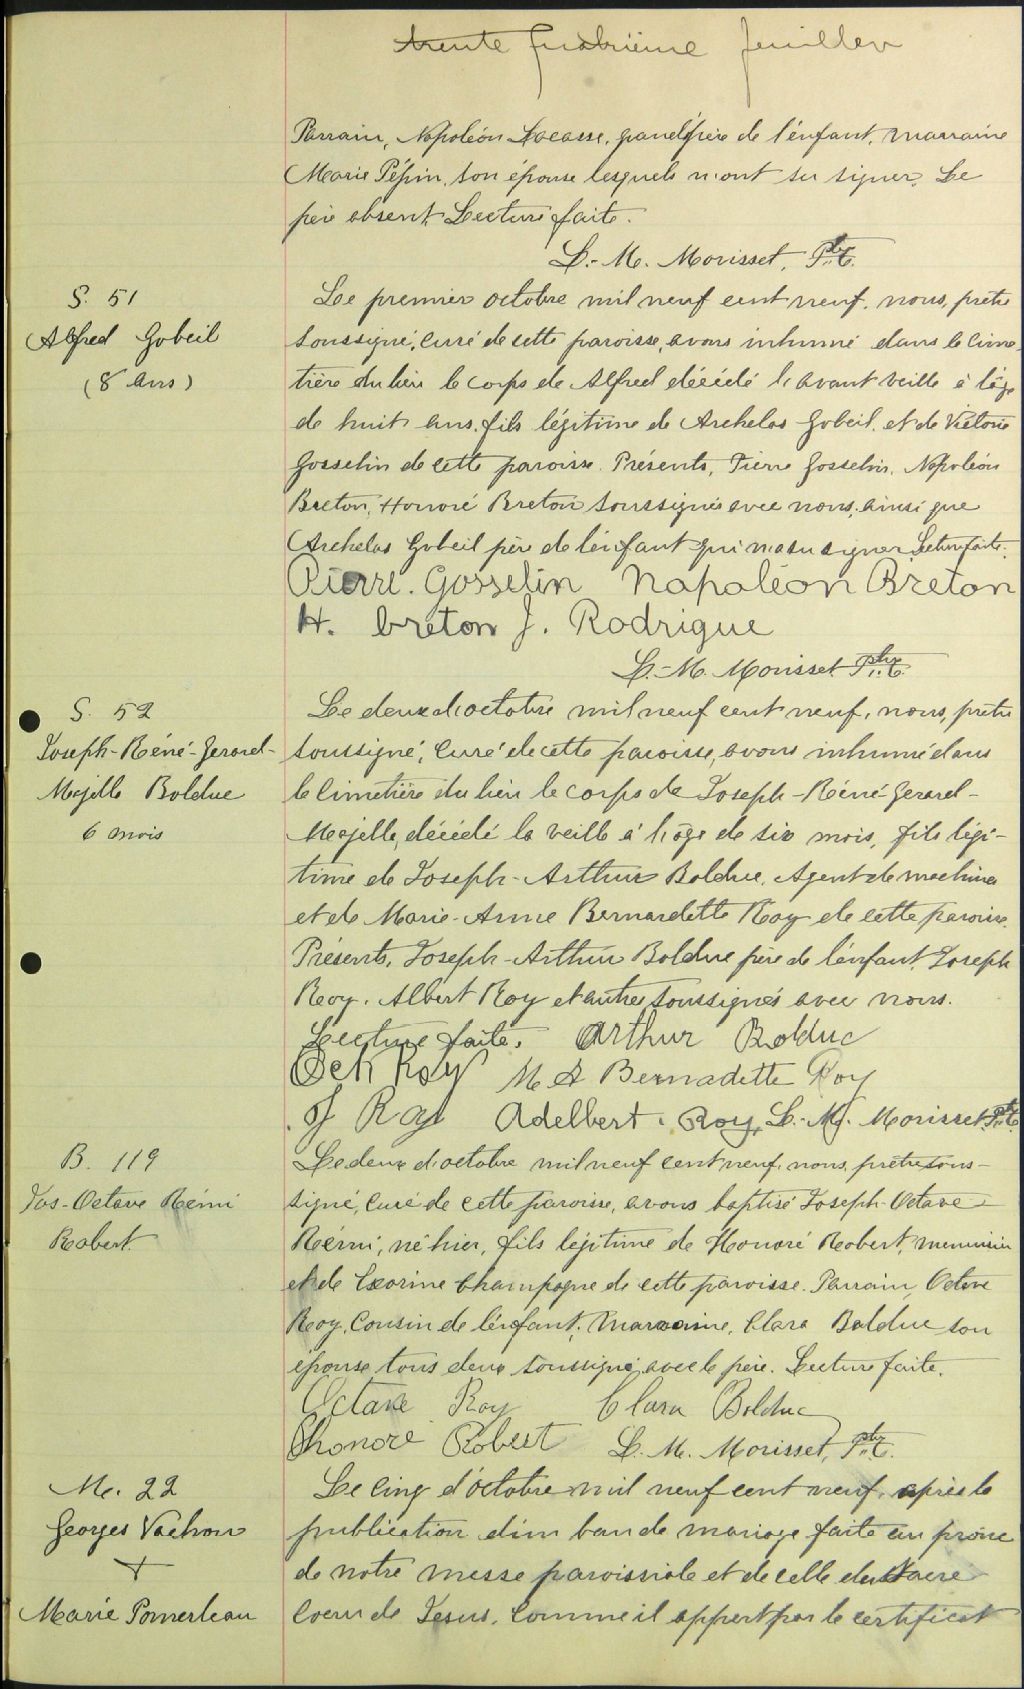 trente quatrième feuillet
Parrain, Napoléon Lacasse, grandpère de l'enfant, marraine
Marie Pépin, son épouse lesquels n'ont su signer. Le
père absent. Lecture faite.
L.-M. Morisset, Ptre.
S. 51
Alfred Gobeil
(8 ans)
Le premier octobre mil neuf cent neuf, nous, prêtre
soussigné, curé de cette paroisse, avons inhumé dans le cime-
tière du lieu le corps de Alfred décédé l'avant veille à l'âge
de huit ans, fils légitime de Archelas Gobeil et de Victorie
Gosselin de cette paroisse. Présents, Pierre Gosselin, Napoléon
Breton, Honoré Breton soussignés avec nous, ainsi que
Archelas Gobeil père de l'enfant qui n'a su signer. Lecture faite.
Pierre. Gosselin Napoléon Breton
H. breton J. Rodrigue
L.-M. Morisset Ptre.
S. 52
Joseph-Réné-Gerard-
Majella Bolduc
6 mois
Le deux d'octobre mil neuf cent neuf, nous, prêtre
soussigné, curé de cette paroisse, avons inhumé dans
le cimetière du lieu le corps de Joseph-Réné-Gerard-
Majella, décédé la veille à l'âge de six mois, fils légi-
time de Joseph-Arthur Bolduc, Agent de machines
et de Marie-Anne Bernardette Roy de cette paroisse.
Présents, Joseph-Arthur Bolduc père de l'enfant, Joseph
Roy, Albert Roy et autres soussignés avec nous.
Lecture faite. Arthur Bolduc
Roy M A Bernadette Roy
J Roy Adelbert. Roy, L.-M. Morisset, Ptre.
B. 119
Jos-Octave Rémi
Robert
Le deux d'octobre mil neuf cent neuf, nous, prêtre sous-
signé, curé de cette paroisse, avons baptisé Joseph-Octave
Rémi, né hier, fils légitime de Honoré Robert, menuisier
et de Exorine Champagne de cette paroisse. Parrain, Octave
Roy, cousin de l'enfant, Marraine, Clara Bolduc son
épouse, tous deux soussignés avec le père. Lecture faite.
Octave Roy Clara Bolduc
Honoré Robert L. M. Morisset, Ptre.
M. 22
Georges Vachon
+
Marie Pomerleau
Le cinq d'octobre mil neuf cent neuf, après la
publication d'un ban de mariage faite au prône
de notre messe paroissiale et de celle du Sacré
Coeur de Jesus, comme il appert par le certificat